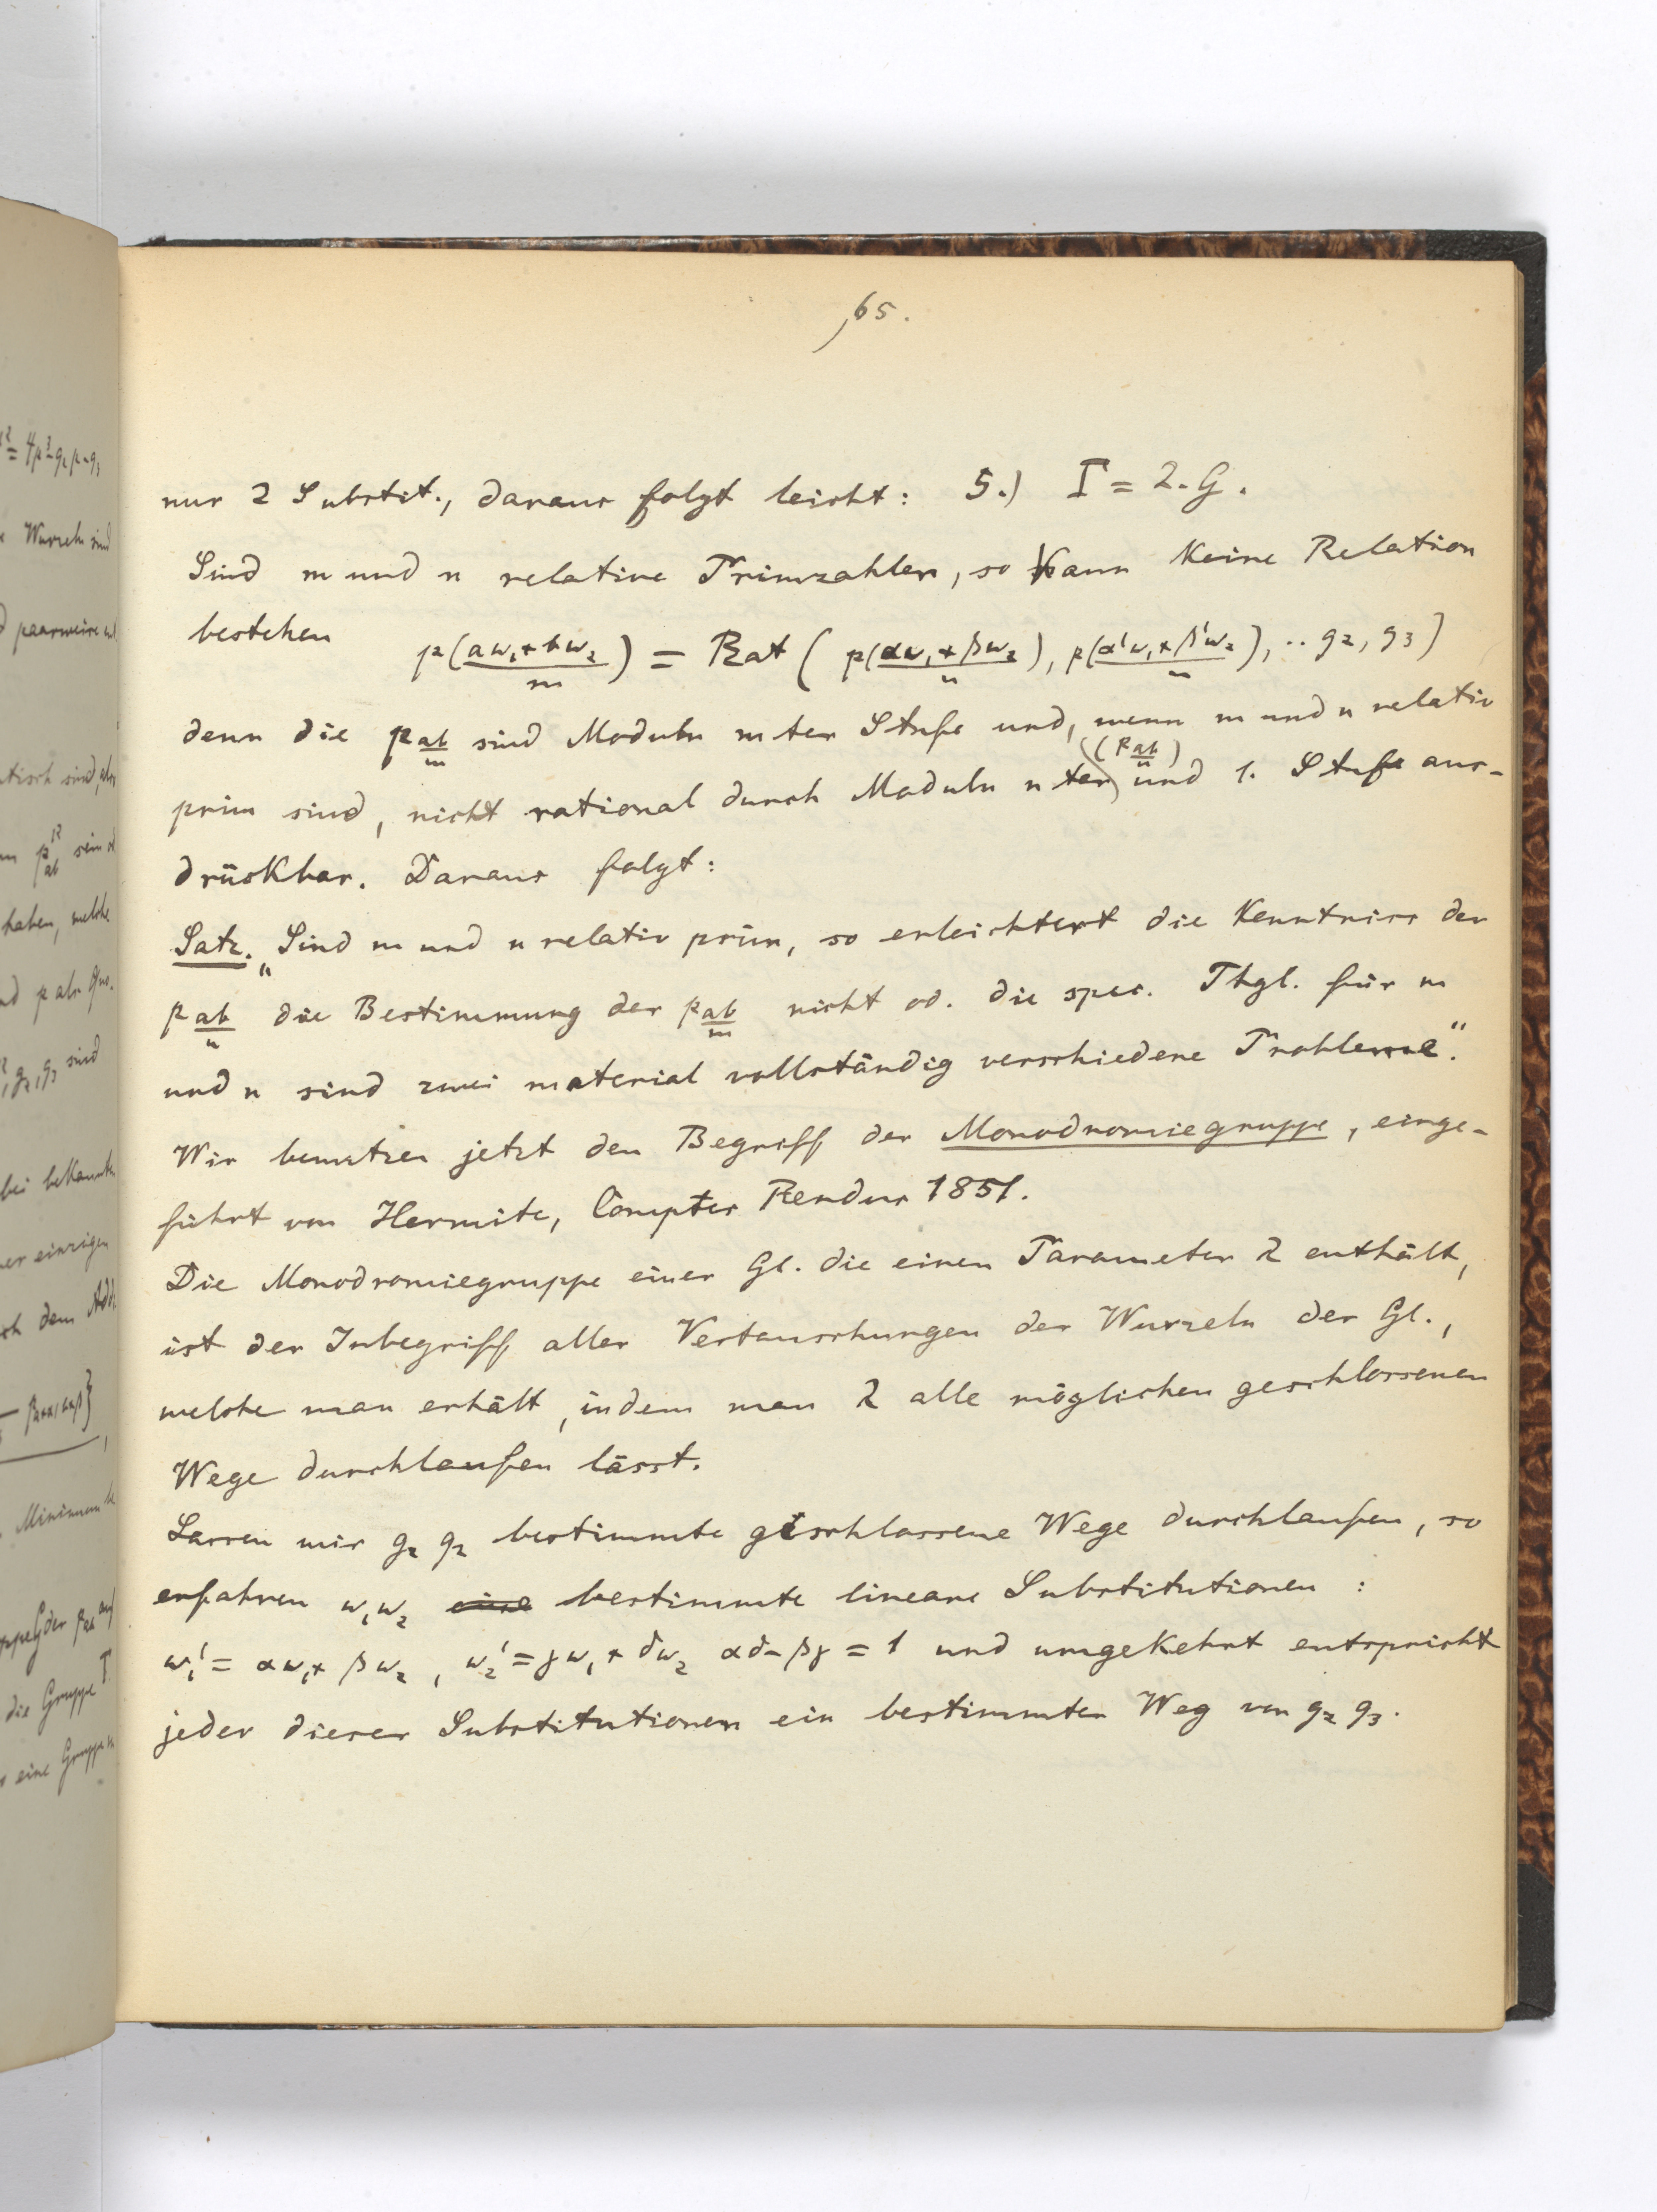 65.
nur 2 Substit., daraus folgt leicht: 5.) Γ = 2. G.
Sind m und n relative Primzahlen, so kann keine Relation
bestehen p((aw₁+bw₂)/m) = Rat ( p((αw₁+βw₂)/n), p((α'w₁+β'w₂)/n), .. g₂, g₃ )
denn die p ab/m sind Moduln mter Stufe und, wenn m und n relativ
prim sind, nicht rational durch Moduln nter (p ab/n) und 1. Stufe aus-
drückbar. Daraus folgt:
Satz. „Sind m und n relativ prim, so erleichtert die Kenntniss der
p ab/n die Bestimmung der p ab/m nicht od. die spec. Thgl. für m
und n sind zwei material vollständig verschiedene Probleme“.
Wir benutzen jetzt den Begriff der Monodromiegruppe, einge-
führt von Hermite, Comptes Rendus 1851.
Die Monodromiegruppe einer Gl. die einen Parameter λ enthält,
ist der Inbegriff aller Vertauschungen der Wurzeln der Gl.,
welche man erhält, indem man λ alle möglichen geschlossenen
Wege durchlaufen lässt.
Lassen wir g₂ g₂ bestimmte geschlossene Wege durchlaufen, so
erfahren w₁w₂ eine bestimmte lineare Substitutionen :
w₁' = αw₁+βw₂, w₂' = γw₁+δw₂ αδ-βγ = 1 und umgekehrt entspricht
jeder dieser Substitutionen ein bestimmter Weg von g₂ g₃.